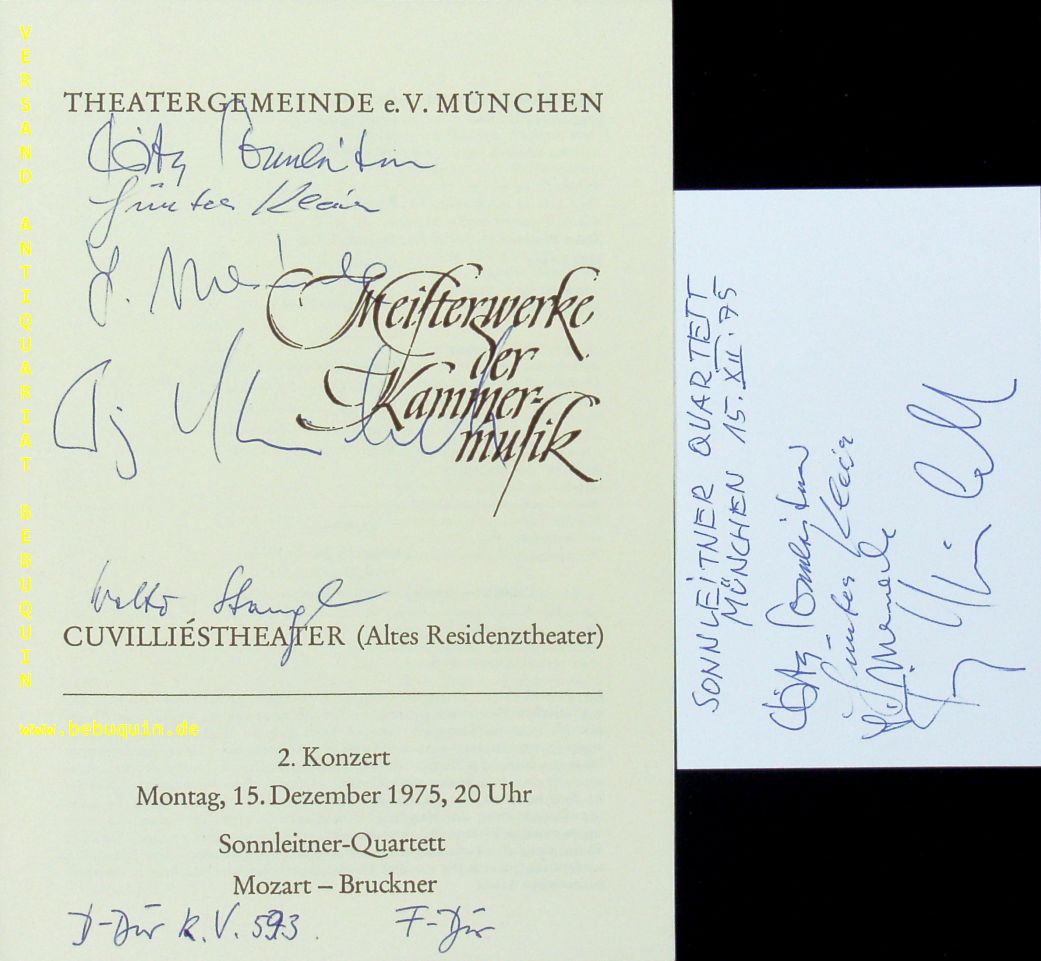 VERSAND ANTIQUARIAT BEBUQUIN
www.bebuquin.de
THEATERGEMEINDE e.V. MÜNCHEN
Götz Sonnleitner
Günter Klein
Meisterwerke
der
Kammer-
musik
Walter Stangl
CUVILLIÉSTHEATER (Altes Residenztheater)
2. Konzert
Montag, 15. Dezember 1975, 20 Uhr
Sonnleitner-Quartett
Mozart – Bruckner
D-Dur K.V. 593 F-Dur
SONNLEITNER QUARTETT
MÜNCHEN 15.XII.75
Götz Sonnleitner
Günter Klein